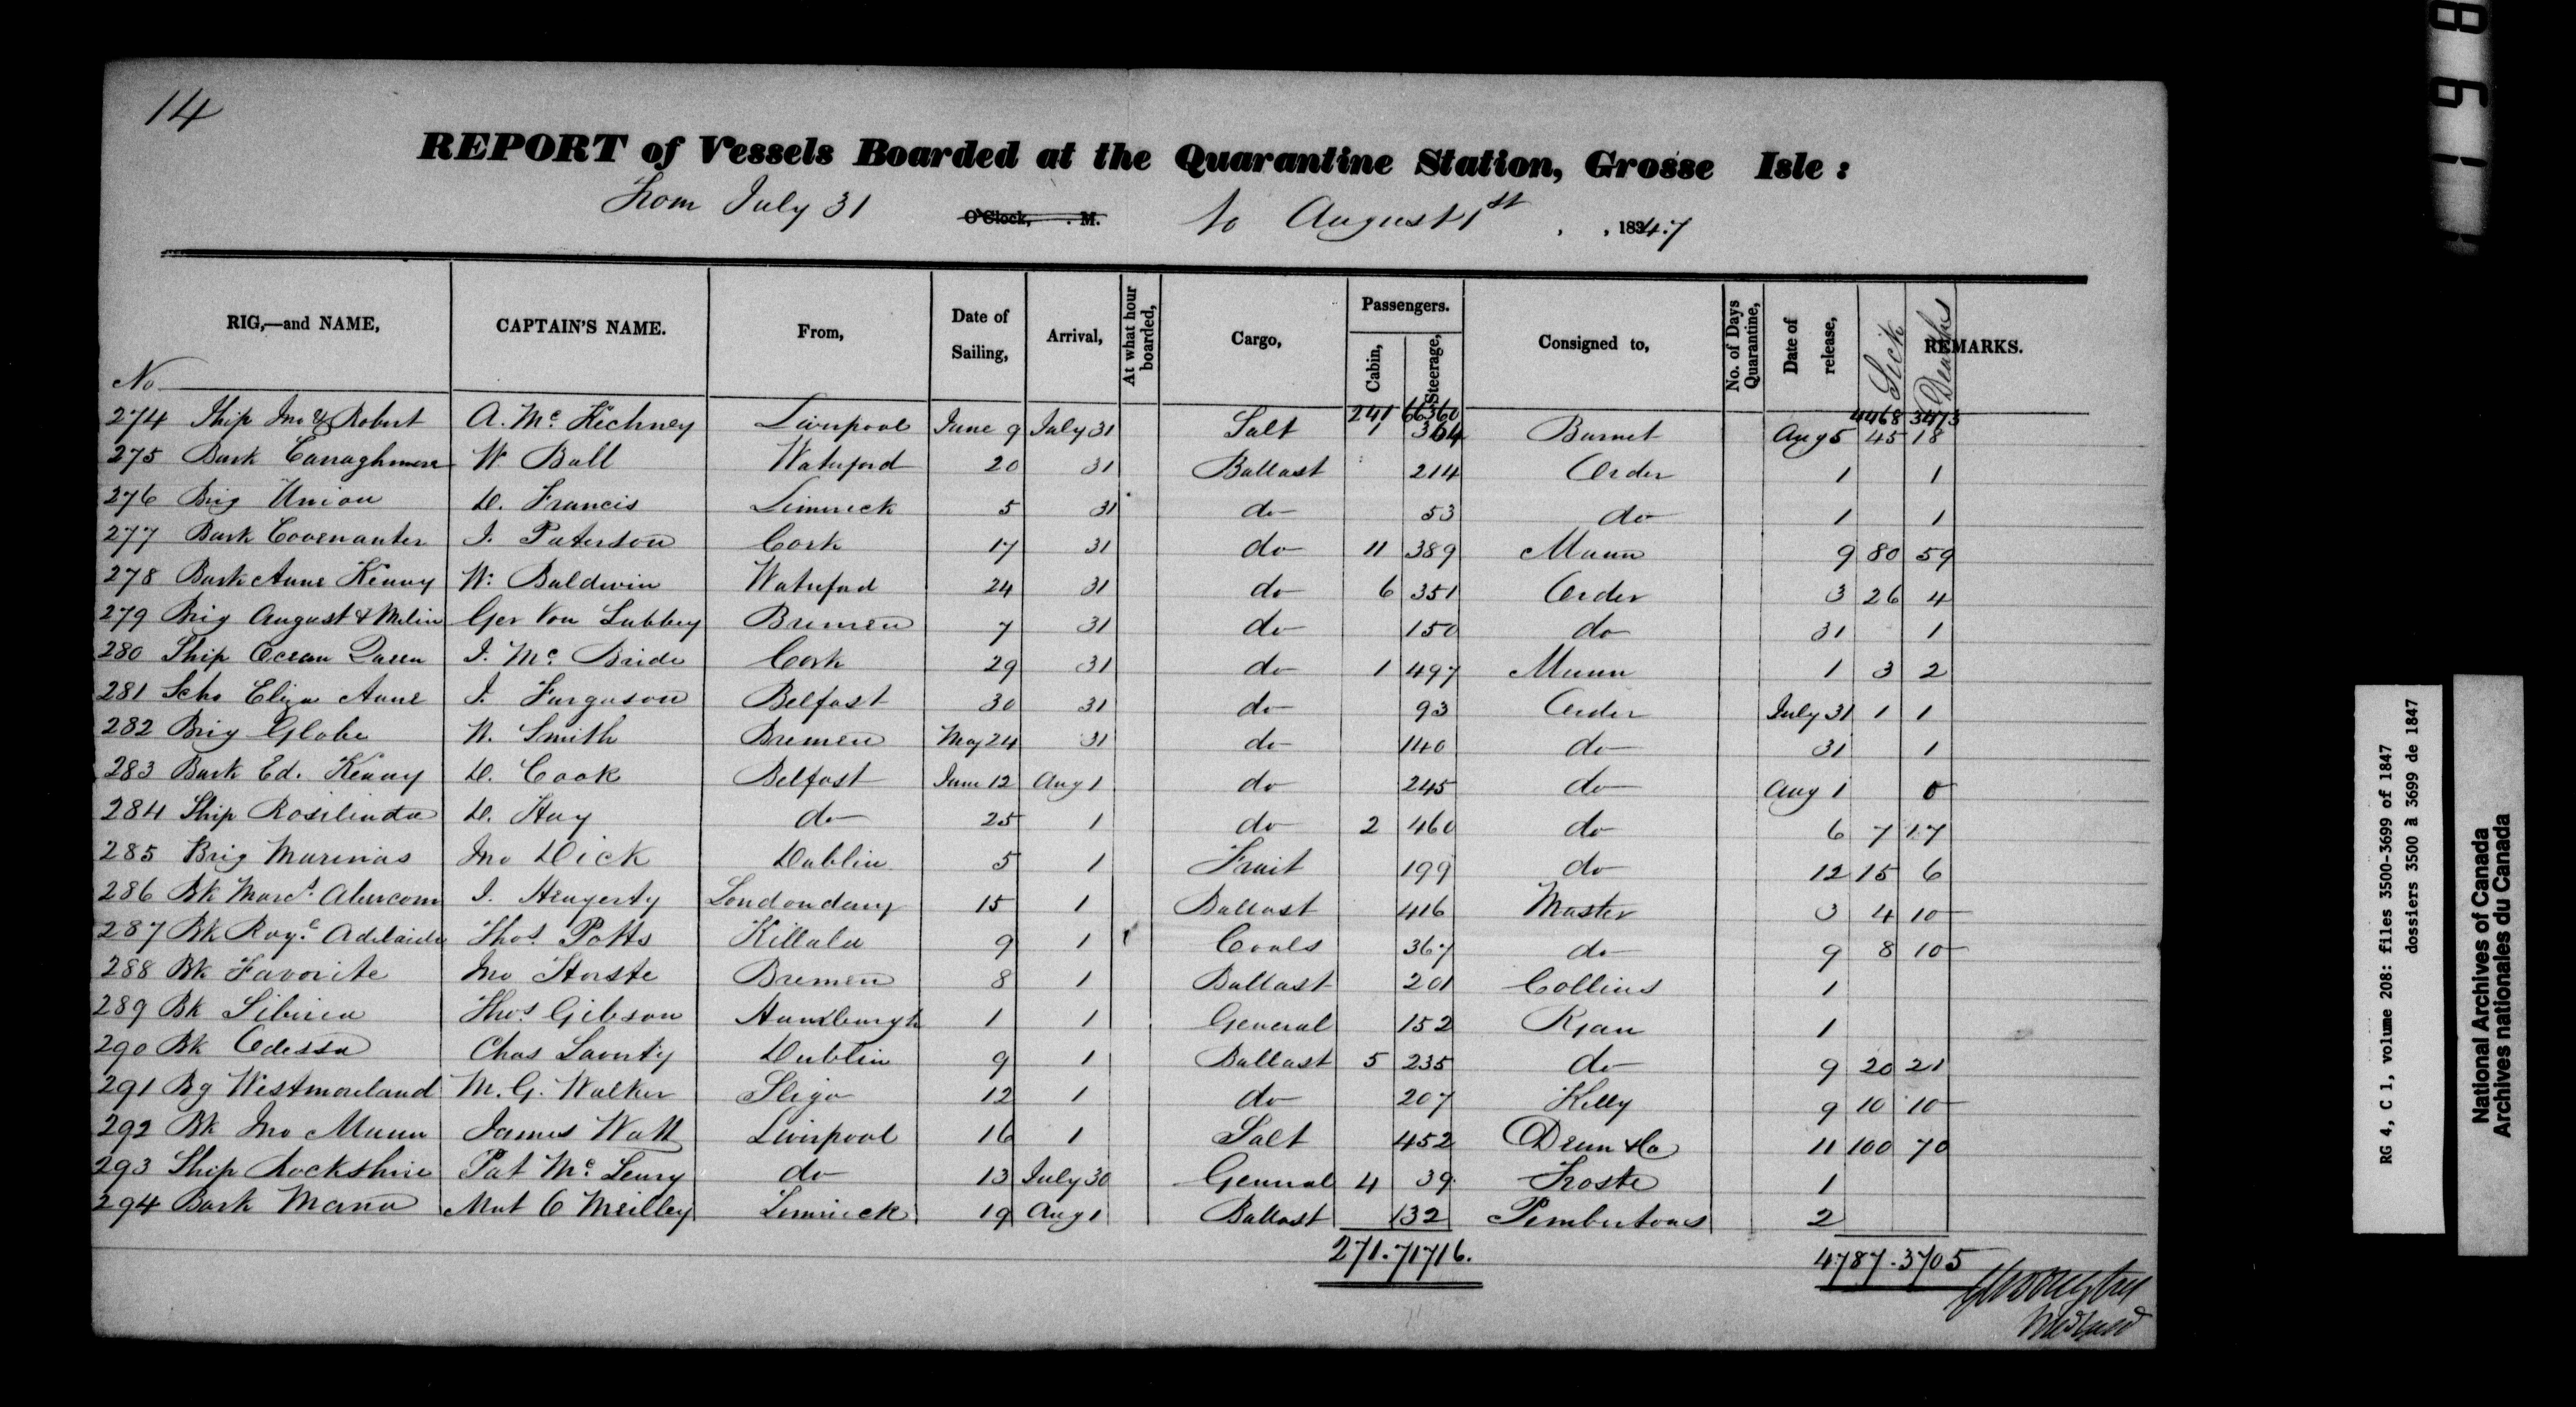 14
REPORT of Vessels Boarded at the Quarantine Station, Grosse Isle :
From July 31 O'Clock, . M. to August 1st , , 1847
RIG,—and NAME, CAPTAIN'S NAME. From, Date of Sailing, Arrival, At what hour boarded, Cargo, Passengers. Cabin, Steerage, Consigned to, No. of Days Quarantine, Date of release, Sick Deaths REMARKS.
No
241 66360 4468 3473
274 Ship Jno & Robert A. Mc Kechney Liverpool June 9 July 31 Salt 1 364 Burnet Aug 5 45 18
275 Bark Carraghmore W Ball Waterford 20 31 Ballast 214 Order 1 1
276 Brig Union D. Francis Limerick 5 31 do 53 do 1 1
277 Bark Covenanter J. Paterson Cork 17 31 do 11 389 Munn 9 80 59
278 Bark Anne Kenny W. Baldwin Waterford 24 31 do 6 351 Order 3 26 4
279 Brig August & Melin Ger Von Lubbey Bremen 7 31 do 150 do 31 1
280 Ship Ocean Queen J. Mc Bride Cork 29 31 do 1 497 Munn 1 3 2
281 Scho Eliza Anne J. Furguson Belfast 30 31 do 93 Order July 31 1 1
282 Brig Globe N. Smith Bremen May 24 31 do 140 do 31 1
283 Bark Ed. Kenny D. Cook Belfast June 12 Aug 1 do 245 do Aug 1 0
284 Ship Rosilinda D. Hay do 25 1 do 2 460 do 6 7 17
285 Brig Marinas Jno Dick Dublin 5 1 Fruit 199 do 12 15 6
286 Bk Marct. Abercom J. Hengerty Londondary 15 1 Ballast 416 Master 3 4 10
287 Bk Roy.l Adelaide Thos Potts Killala 9 1 Coals 367 do 9 8 10
288 Bk Favorite Jno Horste Bremen 8 1 Ballast 201 Collins 1
289 Bk Libiria Thos Gibson Hamburgh 1 1 General 152 Ryan 1
290 Bk Odessa Chas Laverty Dublin 9 1 Ballast 5 235 do 9 20 21
291 Bg Westmoreland M. G. Walker Sligo 12 1 do 207 Kelly 9 10 10
292 Bk Jno Munn James Watt Liverpool 16 1 Salt 452 Drum & Co 11 100 70
293 Ship Rockshire Pat Mc Leury do 13 July 30 General 4 39 Froste 1
294 Bark Maria Mat O Meilley Limrick 19 Aug 1 Ballast 132 Pembertons 2
271. 71716. 4787. 3705
Med Supd
1198
RG 4, C 1, volume 208: files 3500-3699 of 1847
dossiers 3500 à 3699 de 1847
National Archives of Canada
Archives nationales du Canada